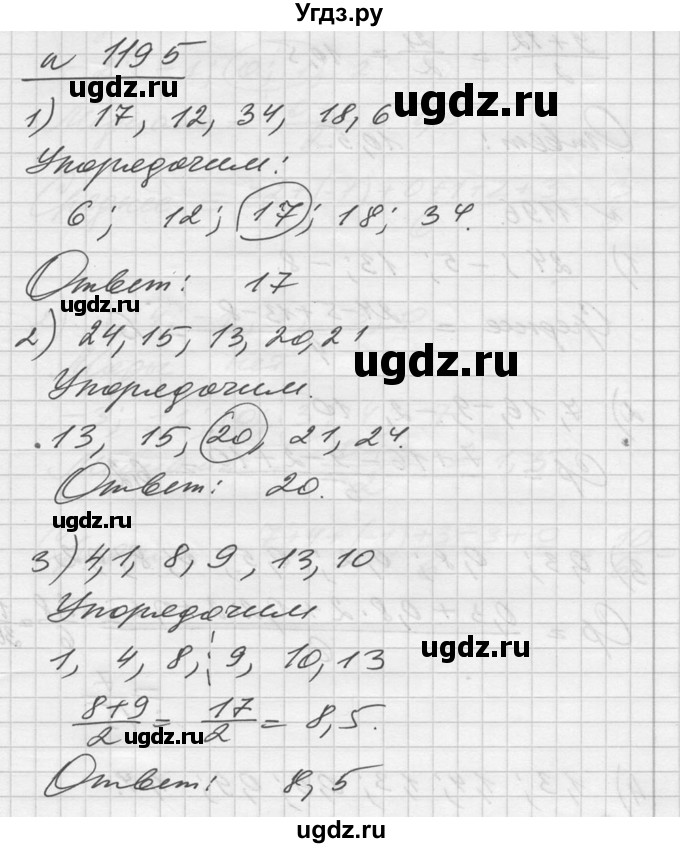 Угдз.ру
№ 1195
ugdz.ru
ugdz.ru
1) 17, 12, 34, 18, 6
Упорядочим:
6; 12; 17; 18; 34.
Ответ: 17
ugdz.ru
2) 24, 15, 13, 20, 21
ugdz.ru
Упорядочим.
13, 15, 20, 21, 24.
Ответ: 20.
ugdz.ru
3) 4, 1, 8, 9, 13, 10
Упорядочим
ugdz.ru
1, 4, 8, 9, 10, 13
8+9/2 = 17/2 = 8,5.
ugdz.ru
Ответ: 8,5
ugdz.ru